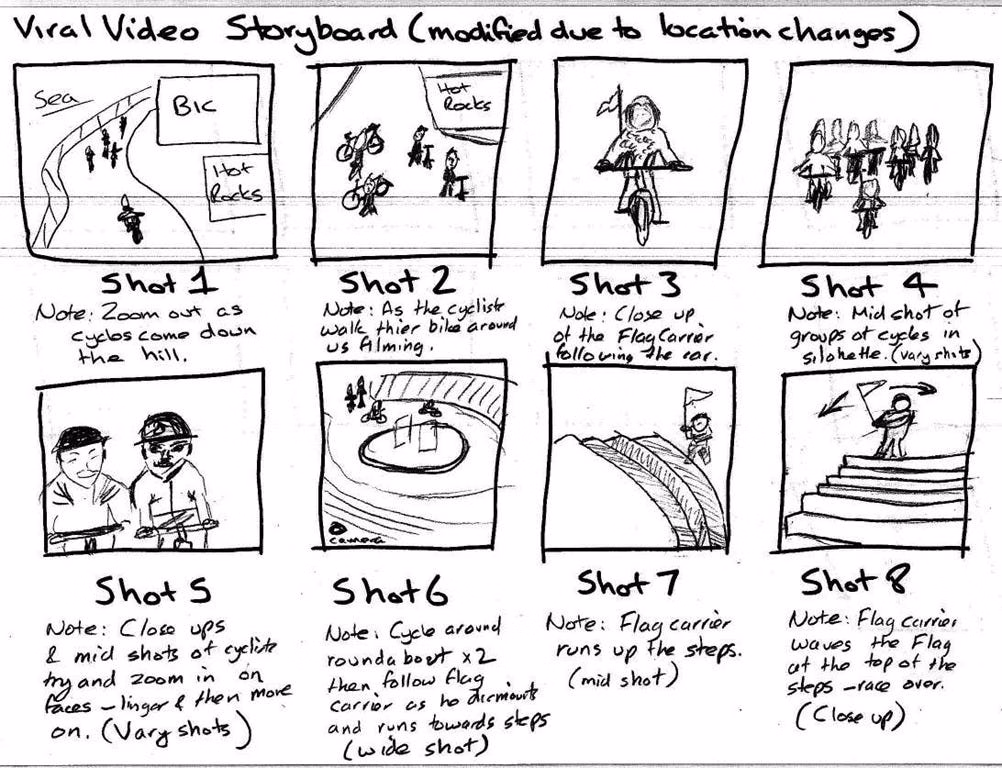 Viral Video Storyboard (modified due to location changes)
Sea
BIC
Hot
Rocks
Hot
Rocks
Shot 1
Note: Zoom out as
cycles come down
the hill.
Shot 2
Note: As the cyclists
walk thier bike around
us filming.
Shot 3
Note: Close up
of the Flag Carrier
following the car.
Shot 4
Note: Mid shot of
groups of cycles in
silohette. (vary shots)
camera
Shot 5
Note: Close ups
& mid shots of cyclists
try and zoom in on
faces - lingar & then move
on. (Vary shots)
Shot 6
Note: Cycle around
roundabout x2
then follow flag
carrier as he dismounts
and runs towards steps
(wide shot)
Shot 7
Note: Flag carrier
runs up the steps.
(mid shot)
Shot 8
Note: Flag carrier
waves the Flag
at the top of the
steps - race over.
(Close up)